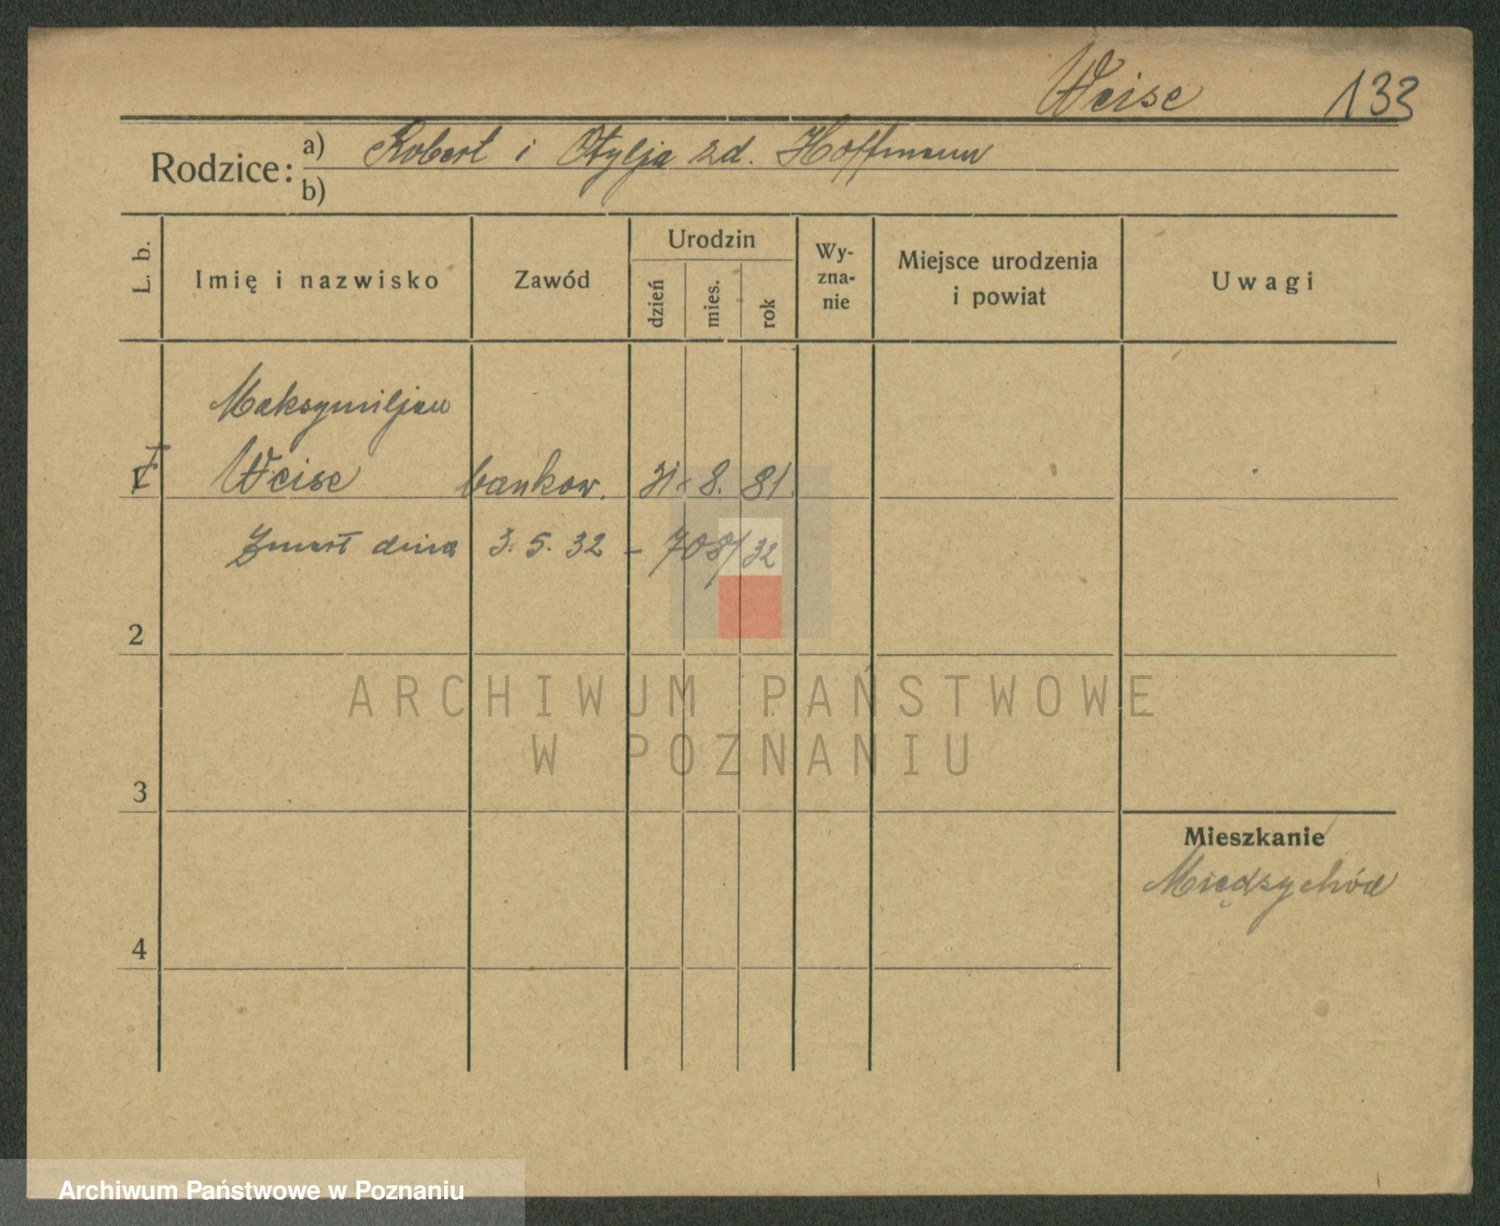 Weise 133
Rodzice: a) Robert i Otylja zd. Hoffmann
b)
L. b. Imię i nazwisko Zawód Urodzin dzień mies. rok Wy-zna-nie Miejsce urodzenia i powiat Uwagi
Maksymiljan
1 Weise bankow. 31. 8. 81.
Zmarł dnia 3. 5. 32 – 708/32
2
3
4
Mieszkanie
Międzychód
ARCHIWUM PAŃSTWOWE
W POZNANIU
Archiwum Państwowe w Poznaniu